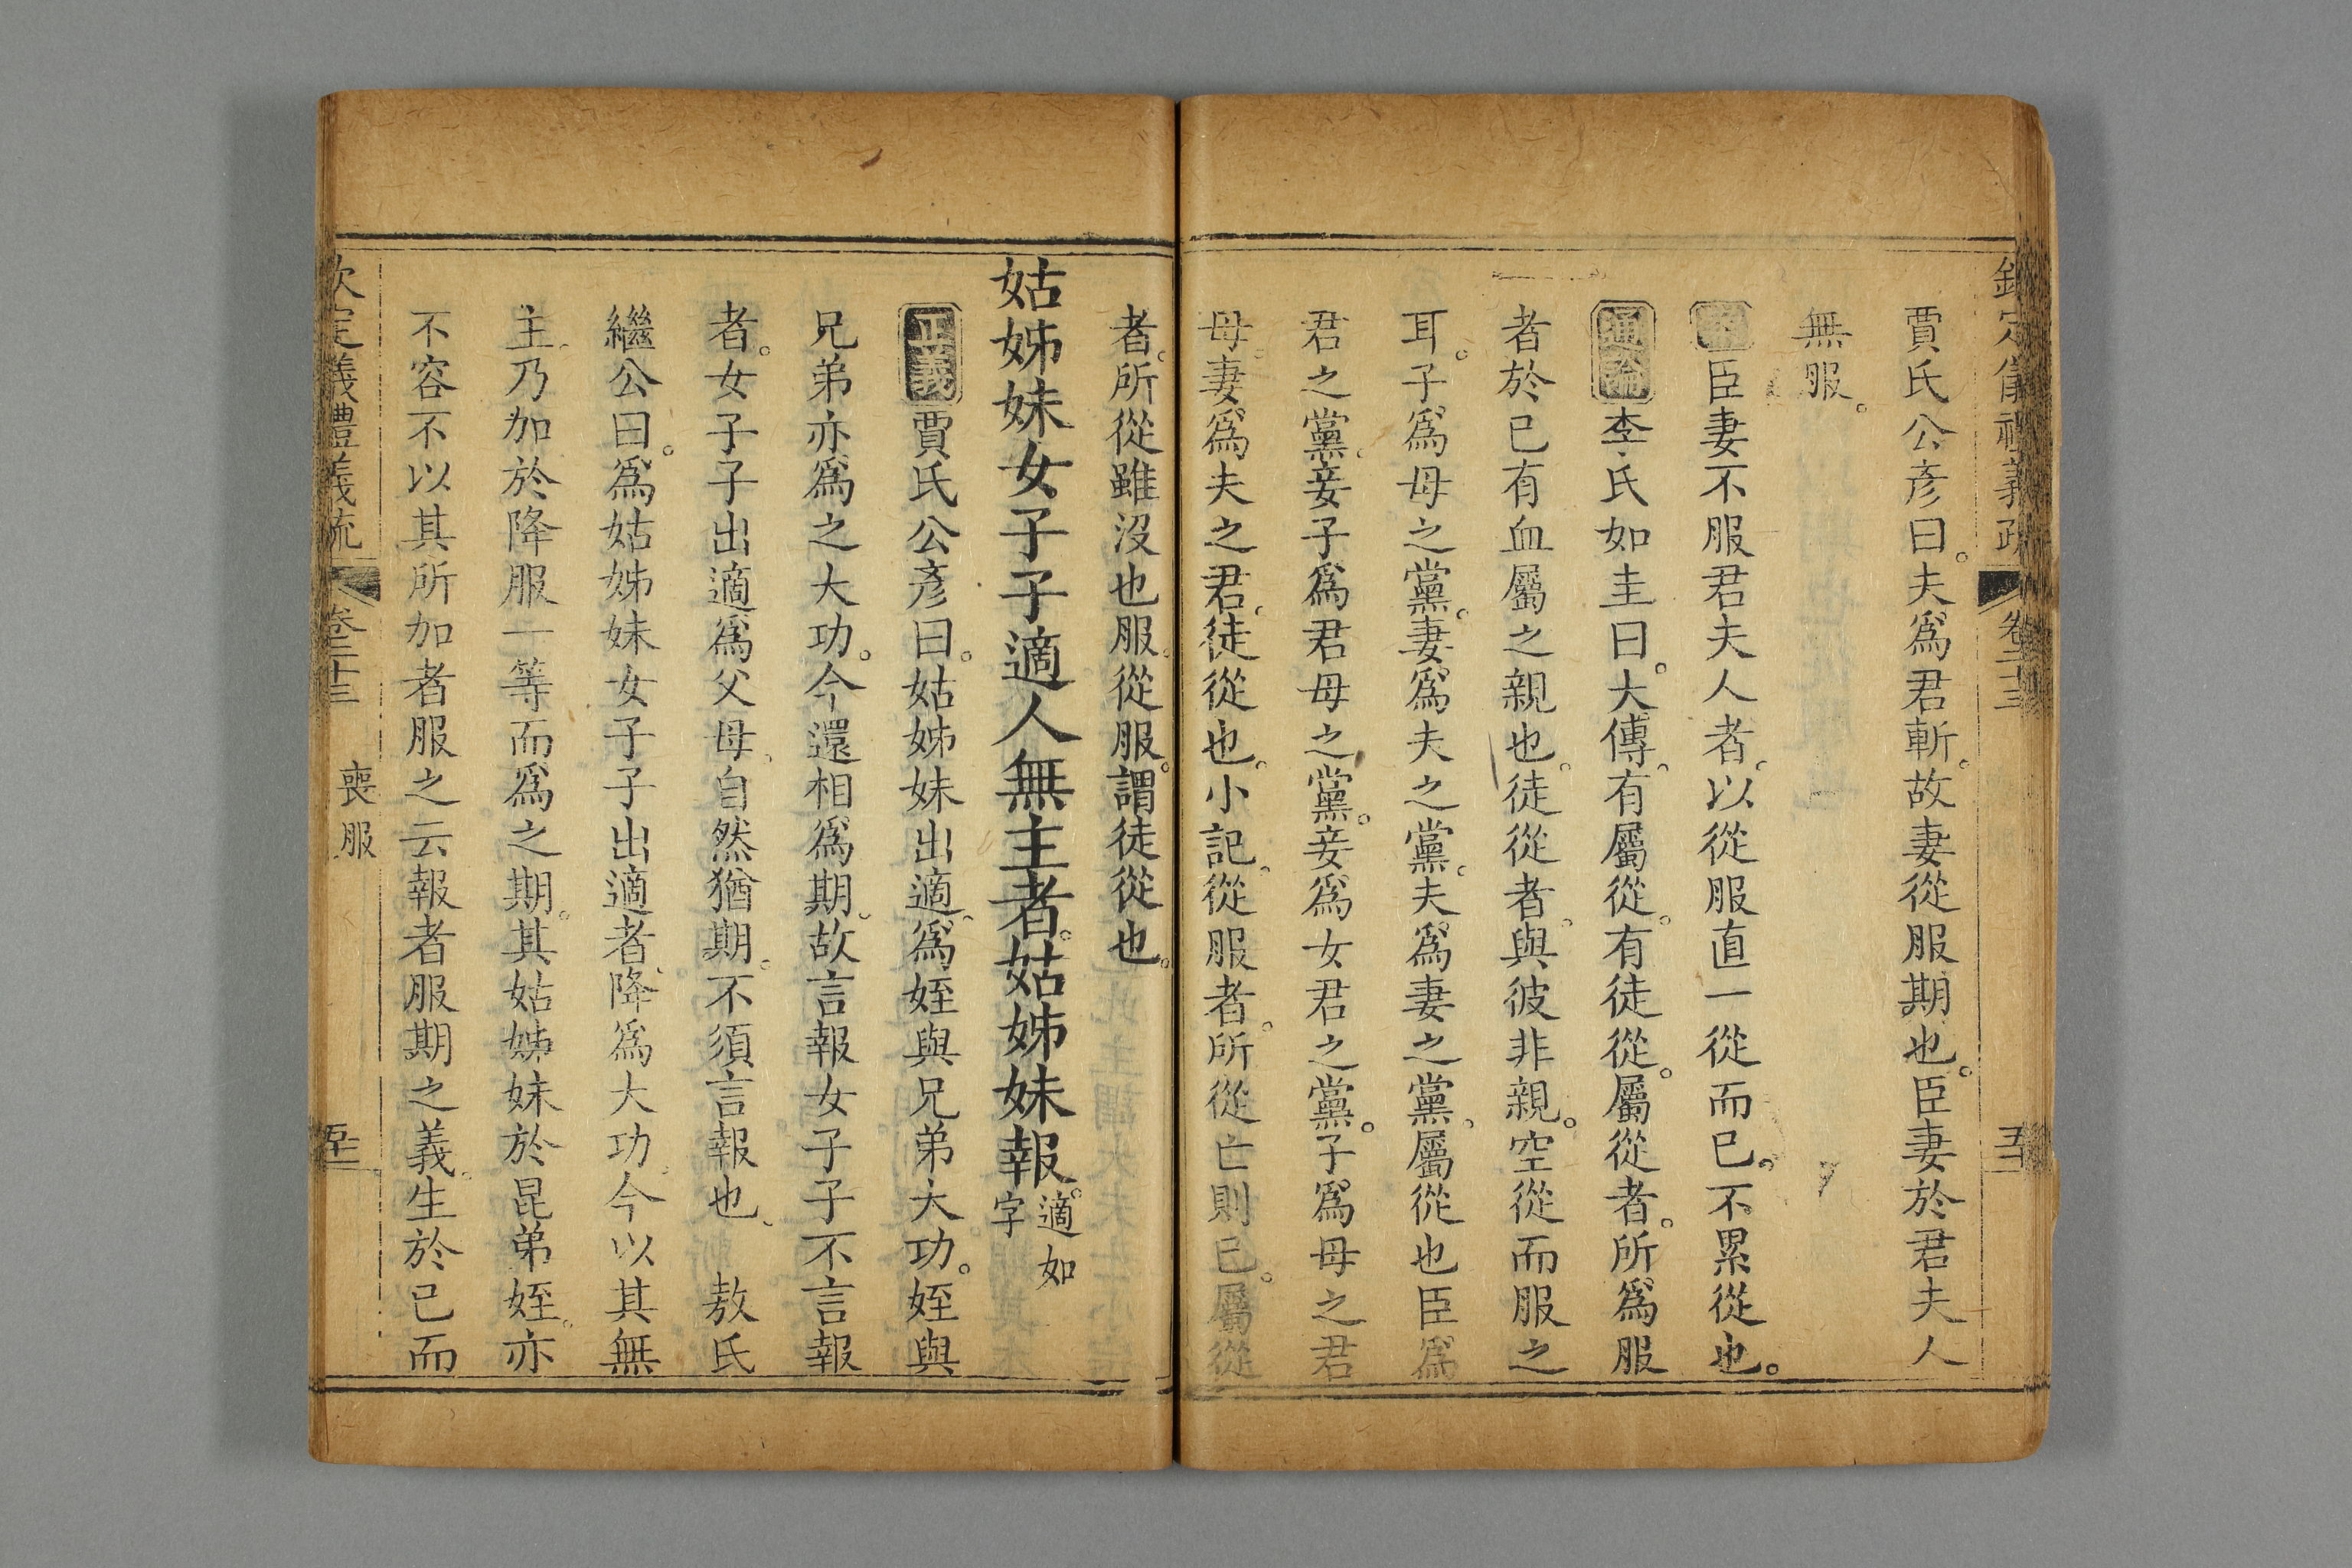 欽定儀禮義疏 卷二十三
賈氏公彦曰。夫爲君斬。故妻從服期也。臣妻於君夫人
無服。
臣妻不服君夫人者。以從服直一從而已。不累從也。
通論李氏如圭曰。大傳。有屬從。有徒從。屬從者。所爲服
者於已有血屬之親也。徒從者。與彼非親。空從而服之
耳。子爲母之黨。妻爲夫之黨。夫爲妻之黨。屬從也臣爲
君之黨。妾子爲君母之黨。妾爲女君之黨。子爲母之君
母。妻爲夫之君。徒從也。小記。從服者。所從亡則已。屬從
者。所從雖沒也服。從服。謂徒從也。
姑姊妹女子子適人無主者。姑姊妹報。適如字
正義賈氏公彦曰。姑姊妹出適。爲姪與兄弟大功。姪與
兄弟亦爲之大功。今還相爲期。故言報女子子不言報
者。女子子出適爲父母。自然猶期。不須言報也。 敖氏
繼公曰。爲姑姊妹女子子出適者。降爲大功。今以其無
主。乃加於降服一等而爲之期。其姑姊妹於昆弟姪。亦
不容不以其所加者服之云報者服期之義。生於已而
欽定儀禮義疏 卷二十三 喪服